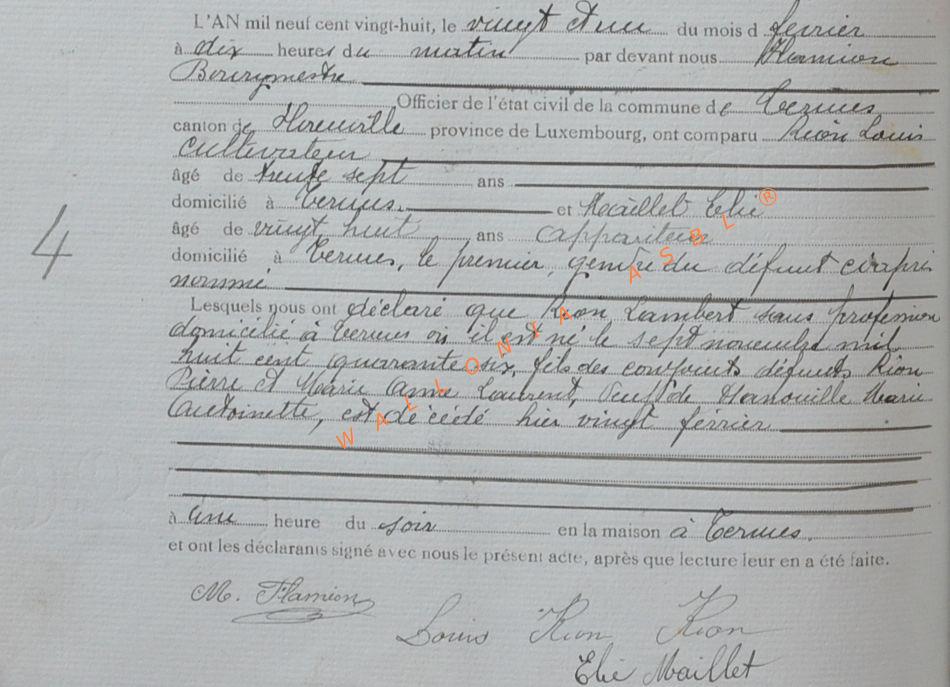 L'AN mil neuf cent vingt-huit, le vingt et un du mois d février
à dix heures du matin par devant nous Flamion
Bourgmestre
Officier de l'état civil de la commune de Termes
canton de Florenville province de Luxembourg, ont comparu Rion Louis
cultivateur
âgé de trente sept ans
domicilié à Termes. et Maillet Elie
âgé de vingt huit ans appariteur
domicilié à Termes, le premier, gendre du défunt ci après
nommé
4
Lesquels nous ont déclaré que Rion Lambert sans profession
domicilié à Termes où il est né le sept novembre mil
huit cent quarante six, fils des conjoints défunts Rion
Pierre et Marie Anne Laurent, veuf de Hanouille Marie
Antoinette, est décédé hier vingt février
à une heure du soir en la maison à Termes.
et ont les déclarants signé avec nous le présent acte, après que lecture leur en a été faite.
M. Flamion
Louis Rion Rion
Elie Maillet
WALLONIA ASBL®